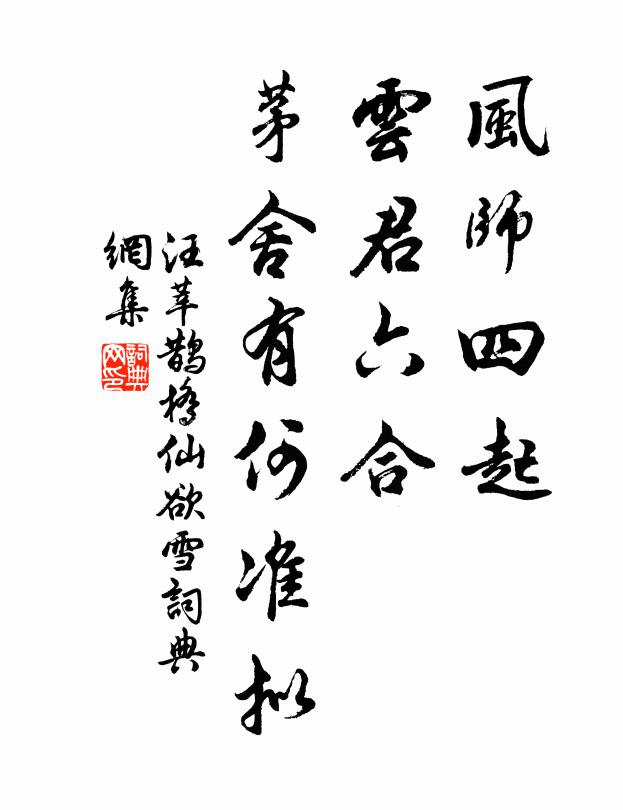 風師四起
雲君六合
茅舍有何准拟
汪莘鵲橋仙欲雪詞典
網集
詞典
网印